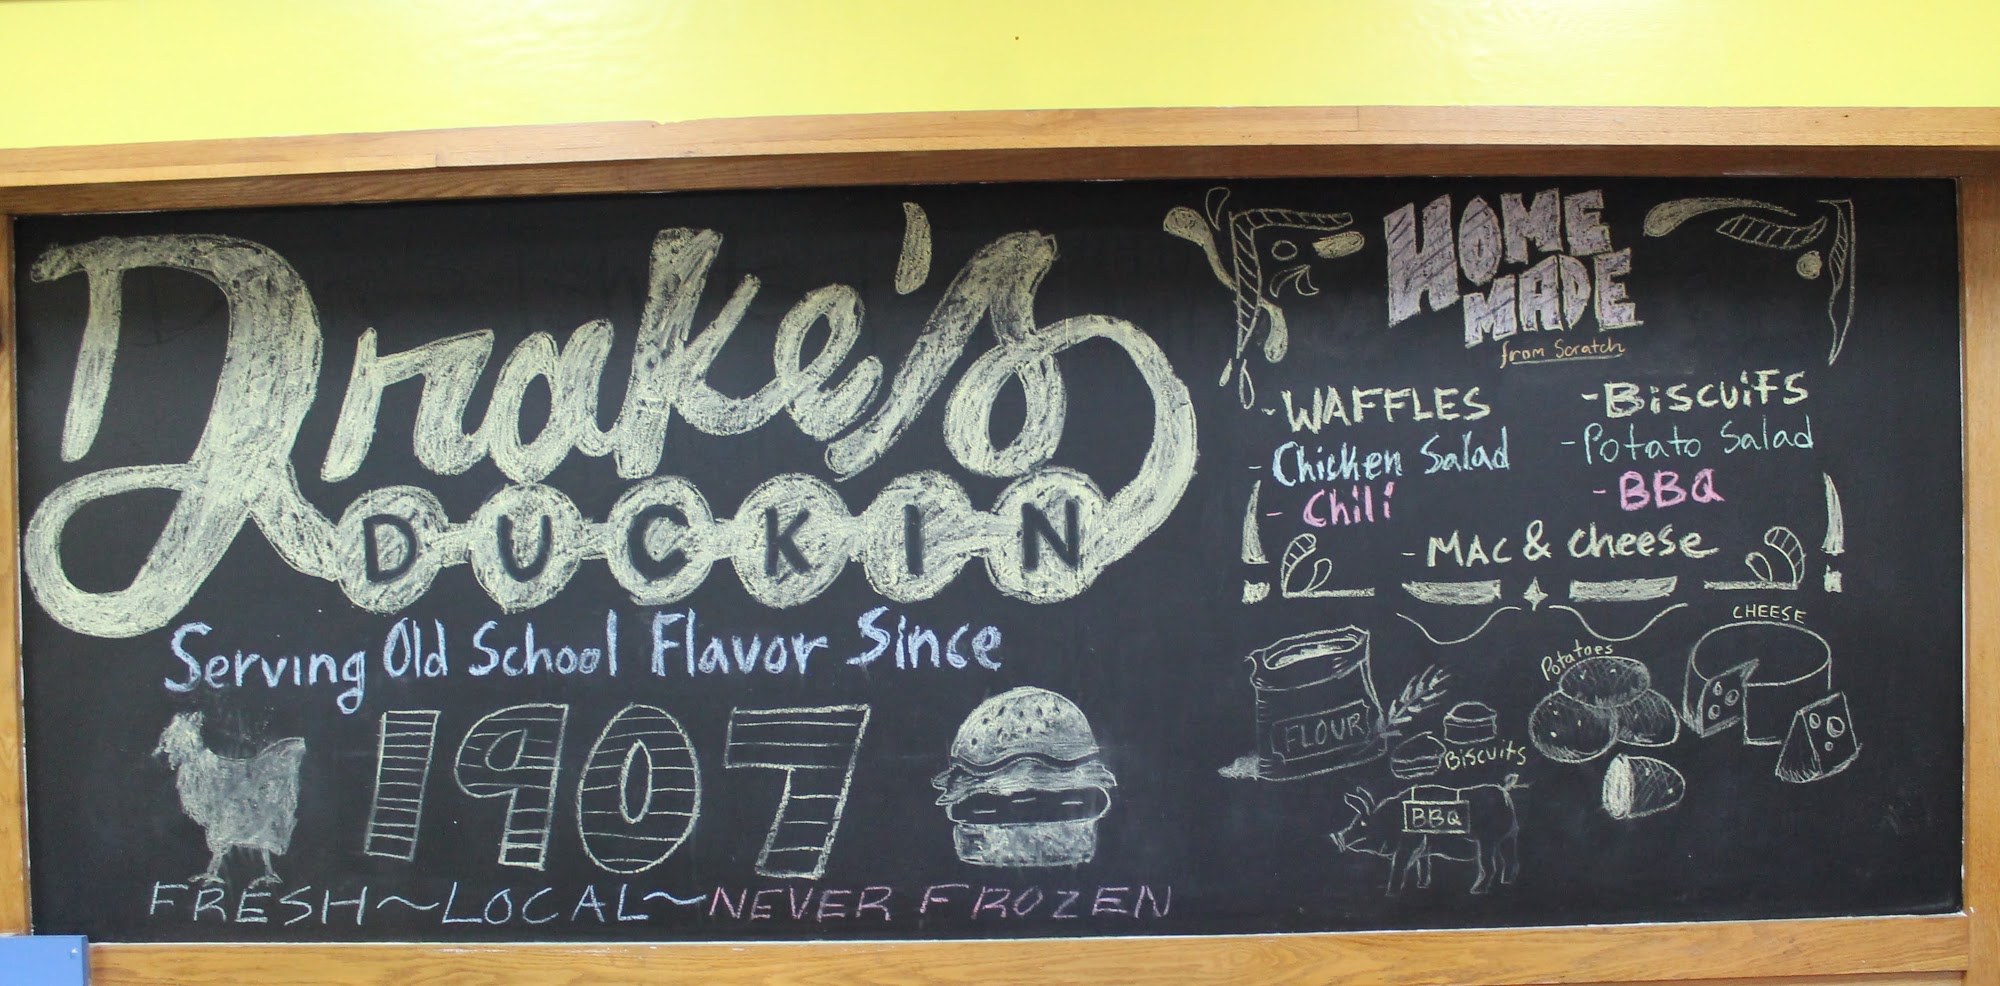 Drake's
DUCKIN
Serving Old School Flavor Since
1907
FRESH~LOCAL~NEVER FROZEN
HOME
MADE
from Scratch
-WAFFLES
-Chicken Salad
-Chili
-BiSCUiTS
-Potato Salad
-BBQ
-MAC & cheese
FLOUR
Biscuits
BBQ
Potatoes
CHEESE